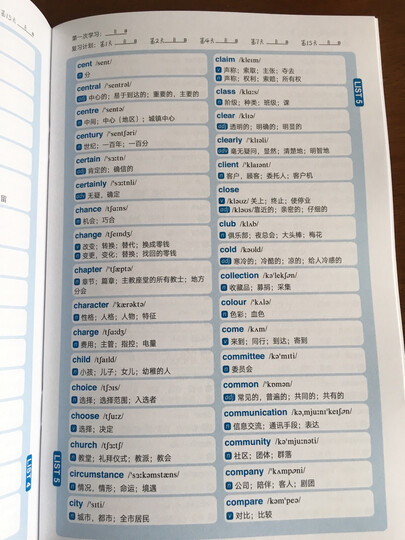 第一次学习：__月__日
复习计划：第1天__月__日 第2天__月__日 第4天__月__日 第7天__月__日 第15天__月__日
cent /sent/
n 分
central /ˈsentrəl/
adj 中心的；易于到达的；重要的，主要的
centre /ˈsentə/
n 中间；中心（地区）；城镇中心
century /ˈsentʃəri/
n 世纪；一百年；一百分
certain /ˈsɜːtn/
adj 肯定的；确信的
certainly /ˈsɜːtnli/
adv 无疑，确定
chance /tʃɑːns/
n 机会；巧合
change /tʃeɪndʒ/
v 改变；转换；替代；换成零钱
n 变更，变化；替换；找回的零钱
chapter /ˈtʃæptə/
n 章节；篇章；主教座堂的所有教士；地方
分会
character /ˈkærəktə/
n 性格；人格；人物；特征
charge /tʃɑːdʒ/
n 费用；主管；指控；电量
child /tʃaɪld/
n 小孩；儿子；女儿；幼稚的人
choice /tʃɔɪs/
n 选择；选择范围；入选者
choose /tʃuːz/
v 选择；决定
church /tʃɜːtʃ/
n 教堂；礼拜仪式；教派；教会
circumstance /ˈsɜːkəmstæns/
n 情况，情形；命运；境遇
city /ˈsɪti/
n 城市，都市；全市居民
claim /kleɪm/
v 声称；索取；主张；夺去
n 声称；权利；索赔；所有权
class /klɑːs/
n 阶级；种类；班级；课
clear /klɪə/
adj 透明的；明确的；明显的
clearly /ˈklɪəli/
adv 毫无疑问，显然；清楚地；明智地
client /ˈklaɪənt/
n 客户，顾客；委托人；客户机
close
v /kləʊz/ 关上；终止；使停业
adj /kləʊs/靠近的；亲密的；仔细的
club /klʌb/
n 俱乐部；夜总会；大头棒；梅花
cold /kəʊld/
adj 寒冷的；冷酷的；凉的；给人冷感的
collection /kəˈlekʃən/
n 收藏品；募捐；采集
colour /ˈkʌlə/
n 色彩；血色
come /kʌm/
v 来到；同行；到达；寄到
committee /kəˈmɪti/
n 委员会
common /ˈkɒmən/
adj 常见的，普遍的；共同的，共有的
communication /kəˌmjuːnɪˈkeɪʃən/
n 信息交流；通讯手段；表达
community /kəˈmjuːnəti/
n 社区；团体；群落
company /ˈkʌmpəni/
n 公司；陪伴；客人；剧团
compare /kəmˈpeə/
v 对比；比较
LIST 5
LIST 4
LIST 5